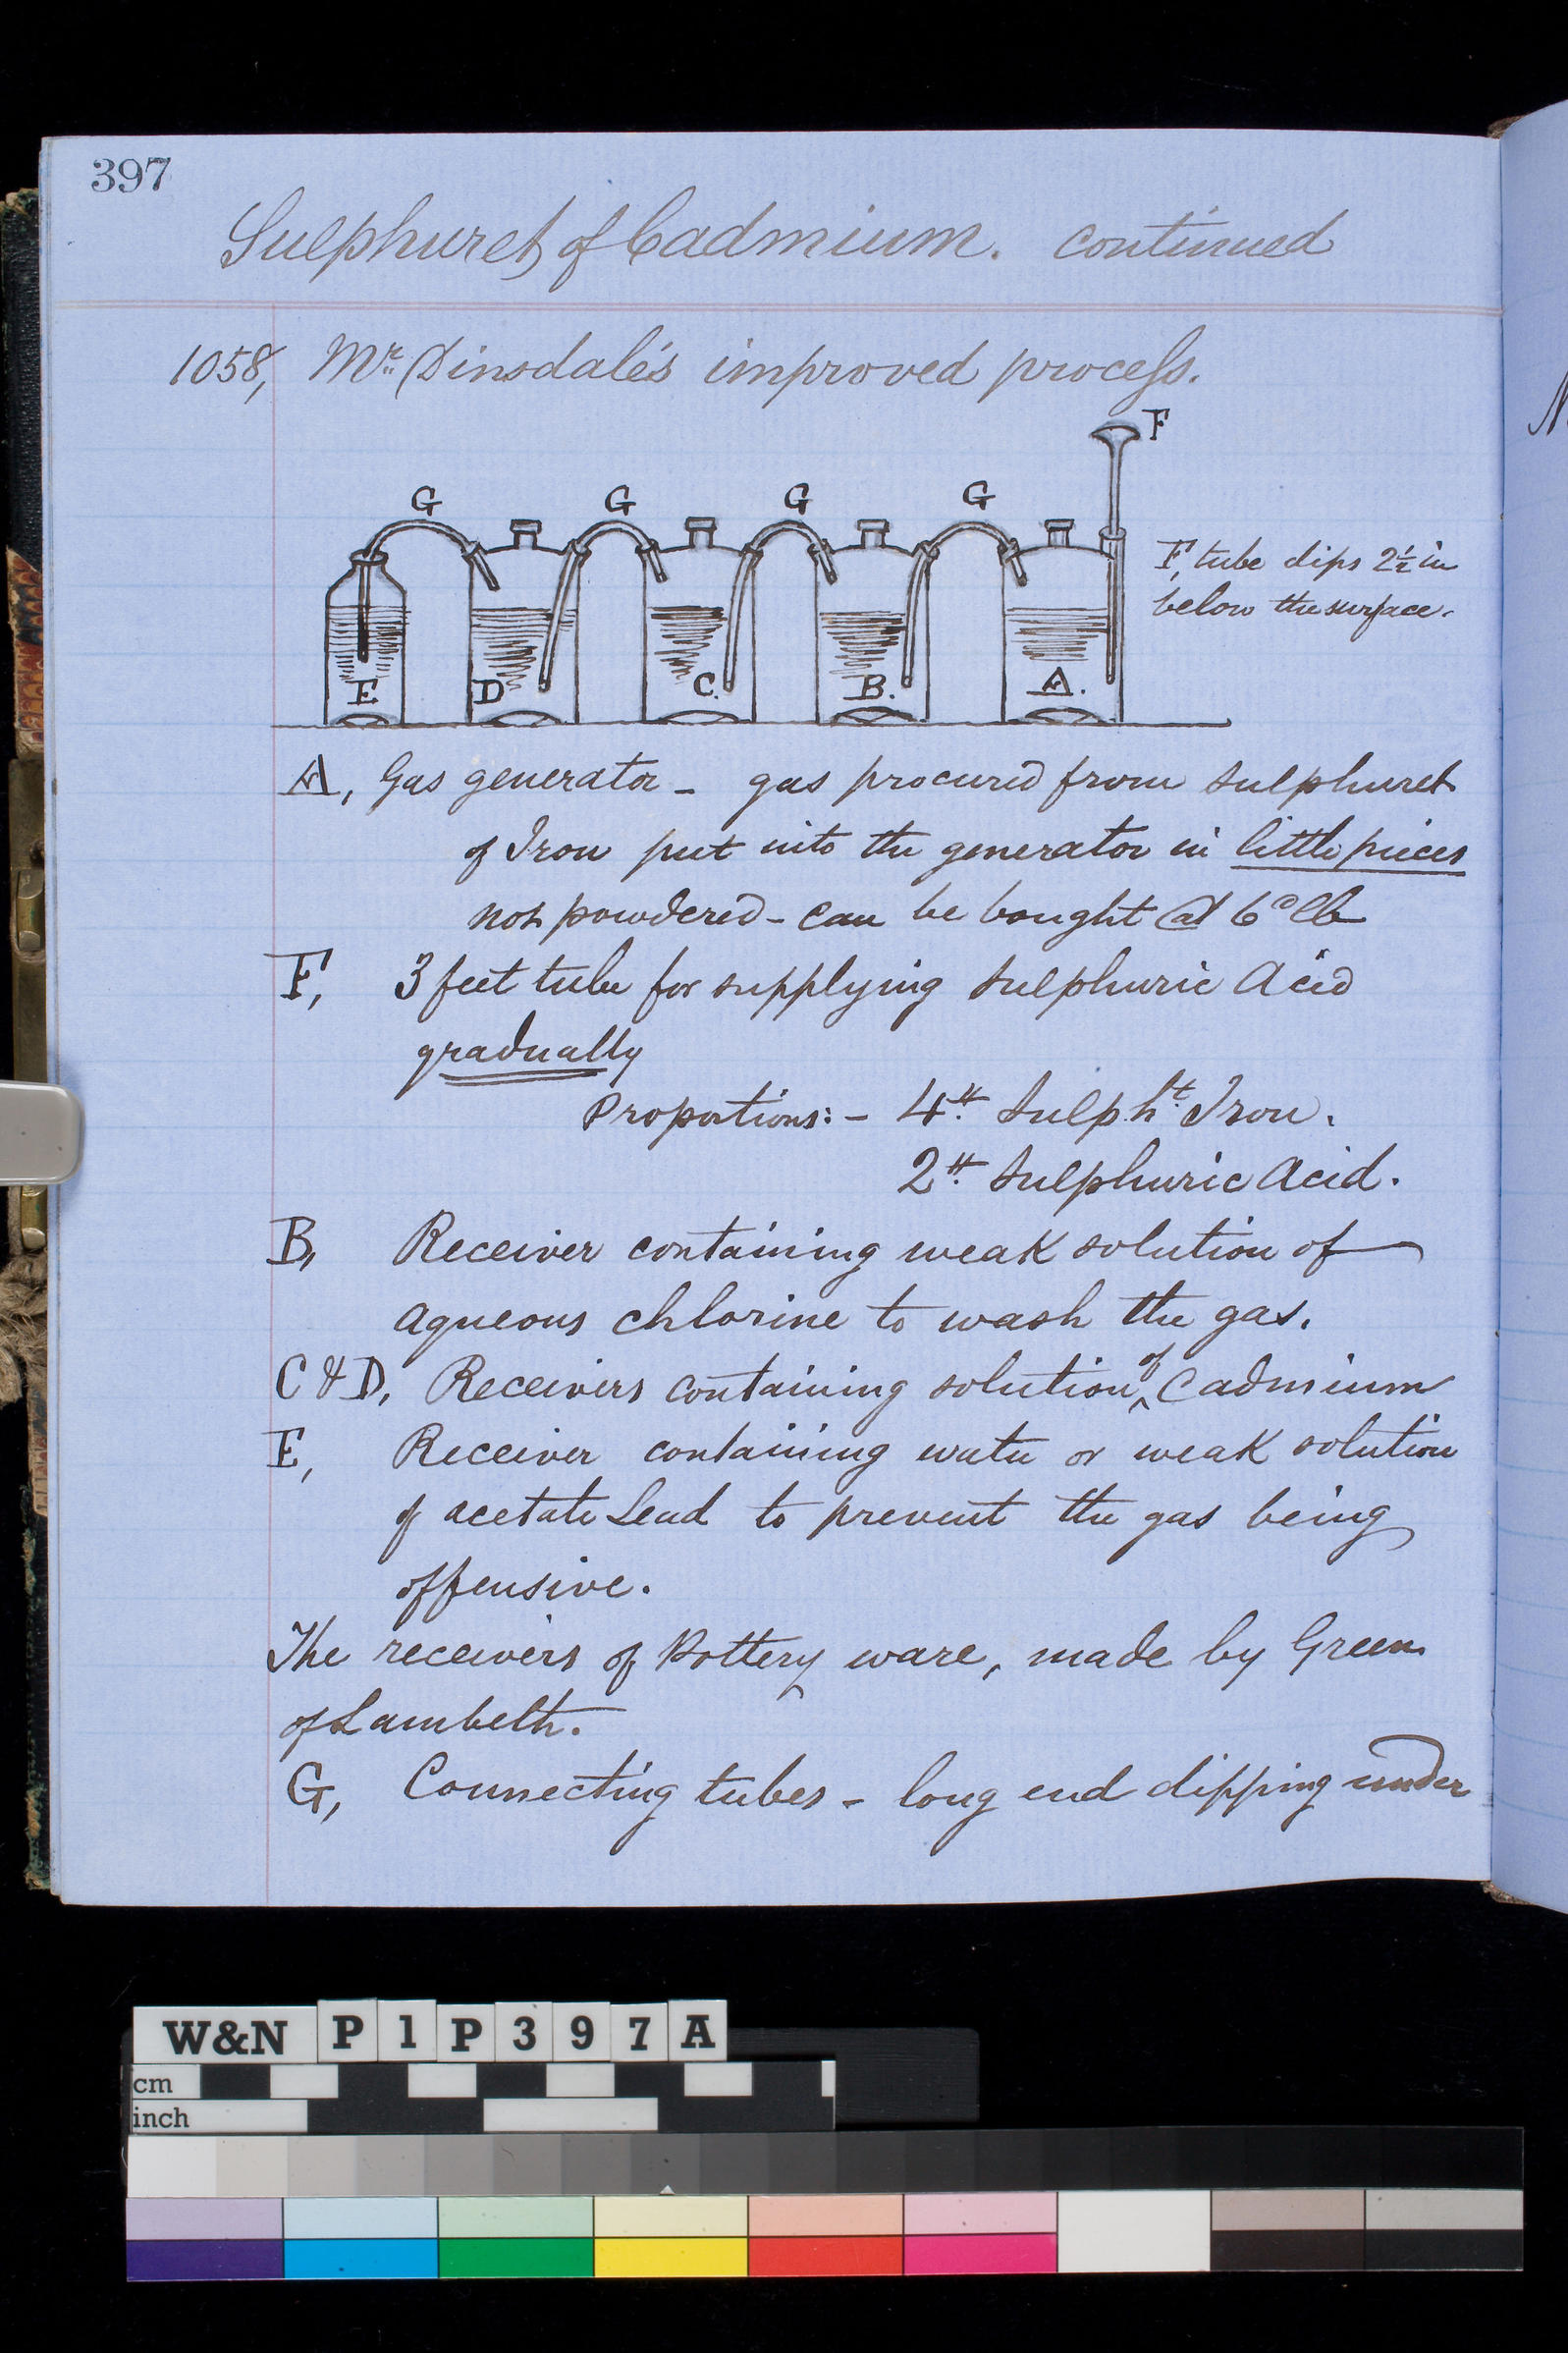 397
Sulphuret of Cadmium. continued
1058, Mr. Dinsdale's improved process.
F
G G G G
F, tube dips 2½ in
below the surface.
E D C. B. A.
A, Gas generator - gas procured from Sulphuret
of Iron put into the generator in little pieces
not powdered - can be bought @ 6d lb
F, 3 feet tube for supplying Sulphuric Acid
gradually
Proportions:- 4 lb. Sulpht. Iron.
2 lb. Sulphuric Acid.
B, Receiver containing weak solution of
aqueous chlorine to wash the gas.
C & D, Receivers containing solution of Cadmium
E, Receiver containing water or weak solution
of acetate Lead to prevent the gas being
offensive.
The receivers of Pottery ware, made by Green
of Lambeth.
G, Connecting tubes - long end dipping under
W&N P1P397A
cm
inch